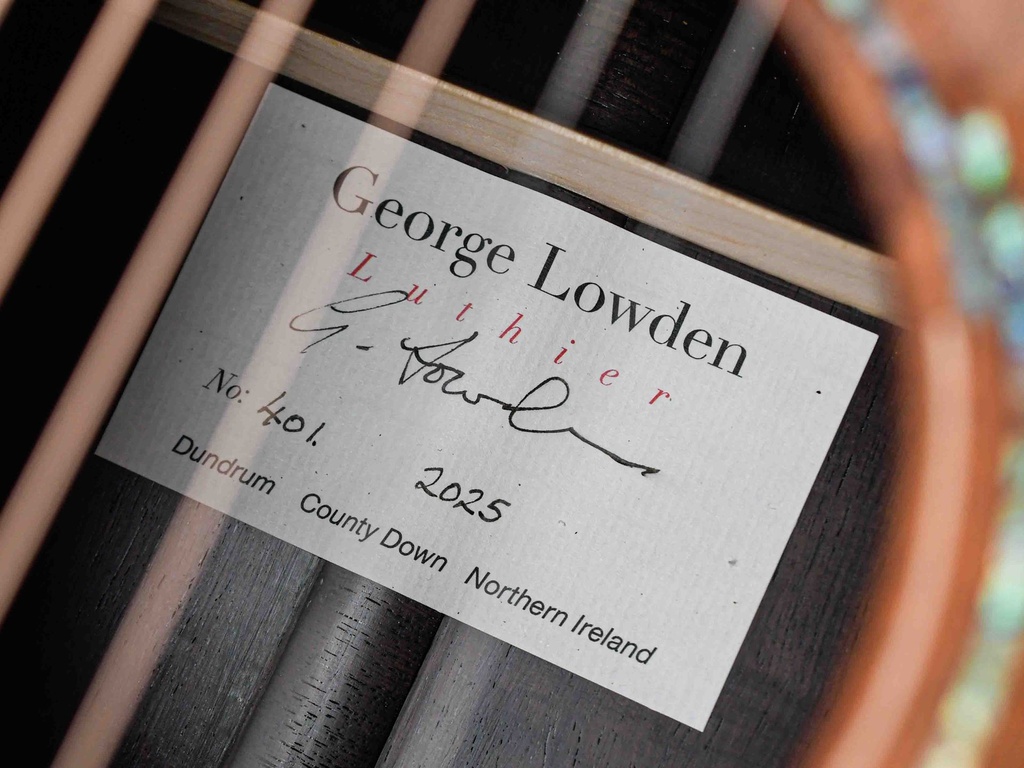 George Lowden
Luthier
G. Lowden
No: 401.
2025
Dundrum County Down Northern Ireland